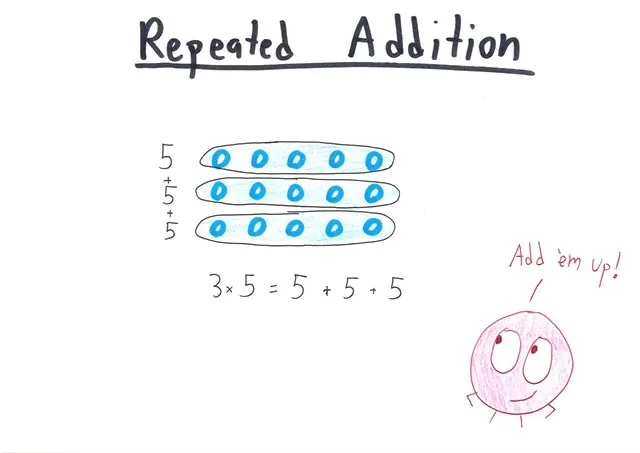 Repeated Addition
5
+
5
+
5
3 × 5 = 5 + 5 + 5
Add 'em up!